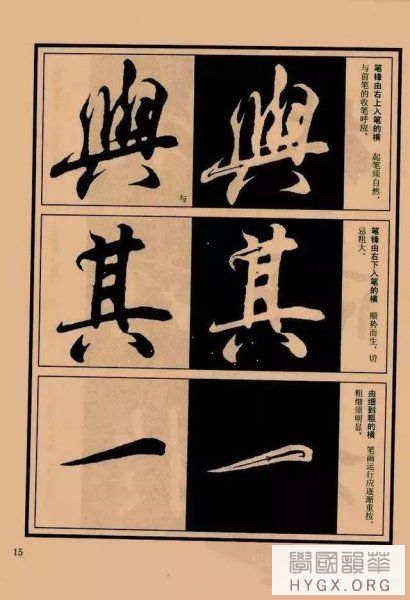 笔锋由右上入笔的横 起笔须自然,
与前笔的收笔呼应。
與 與
与
笔锋由右下入笔的横 顺势而生,切
忌粗大。
其 其
由细到粗的横 笔画运行应逐渐重按,
粗细须明显。
一 一
15
學國韻華
HYGX.ORG